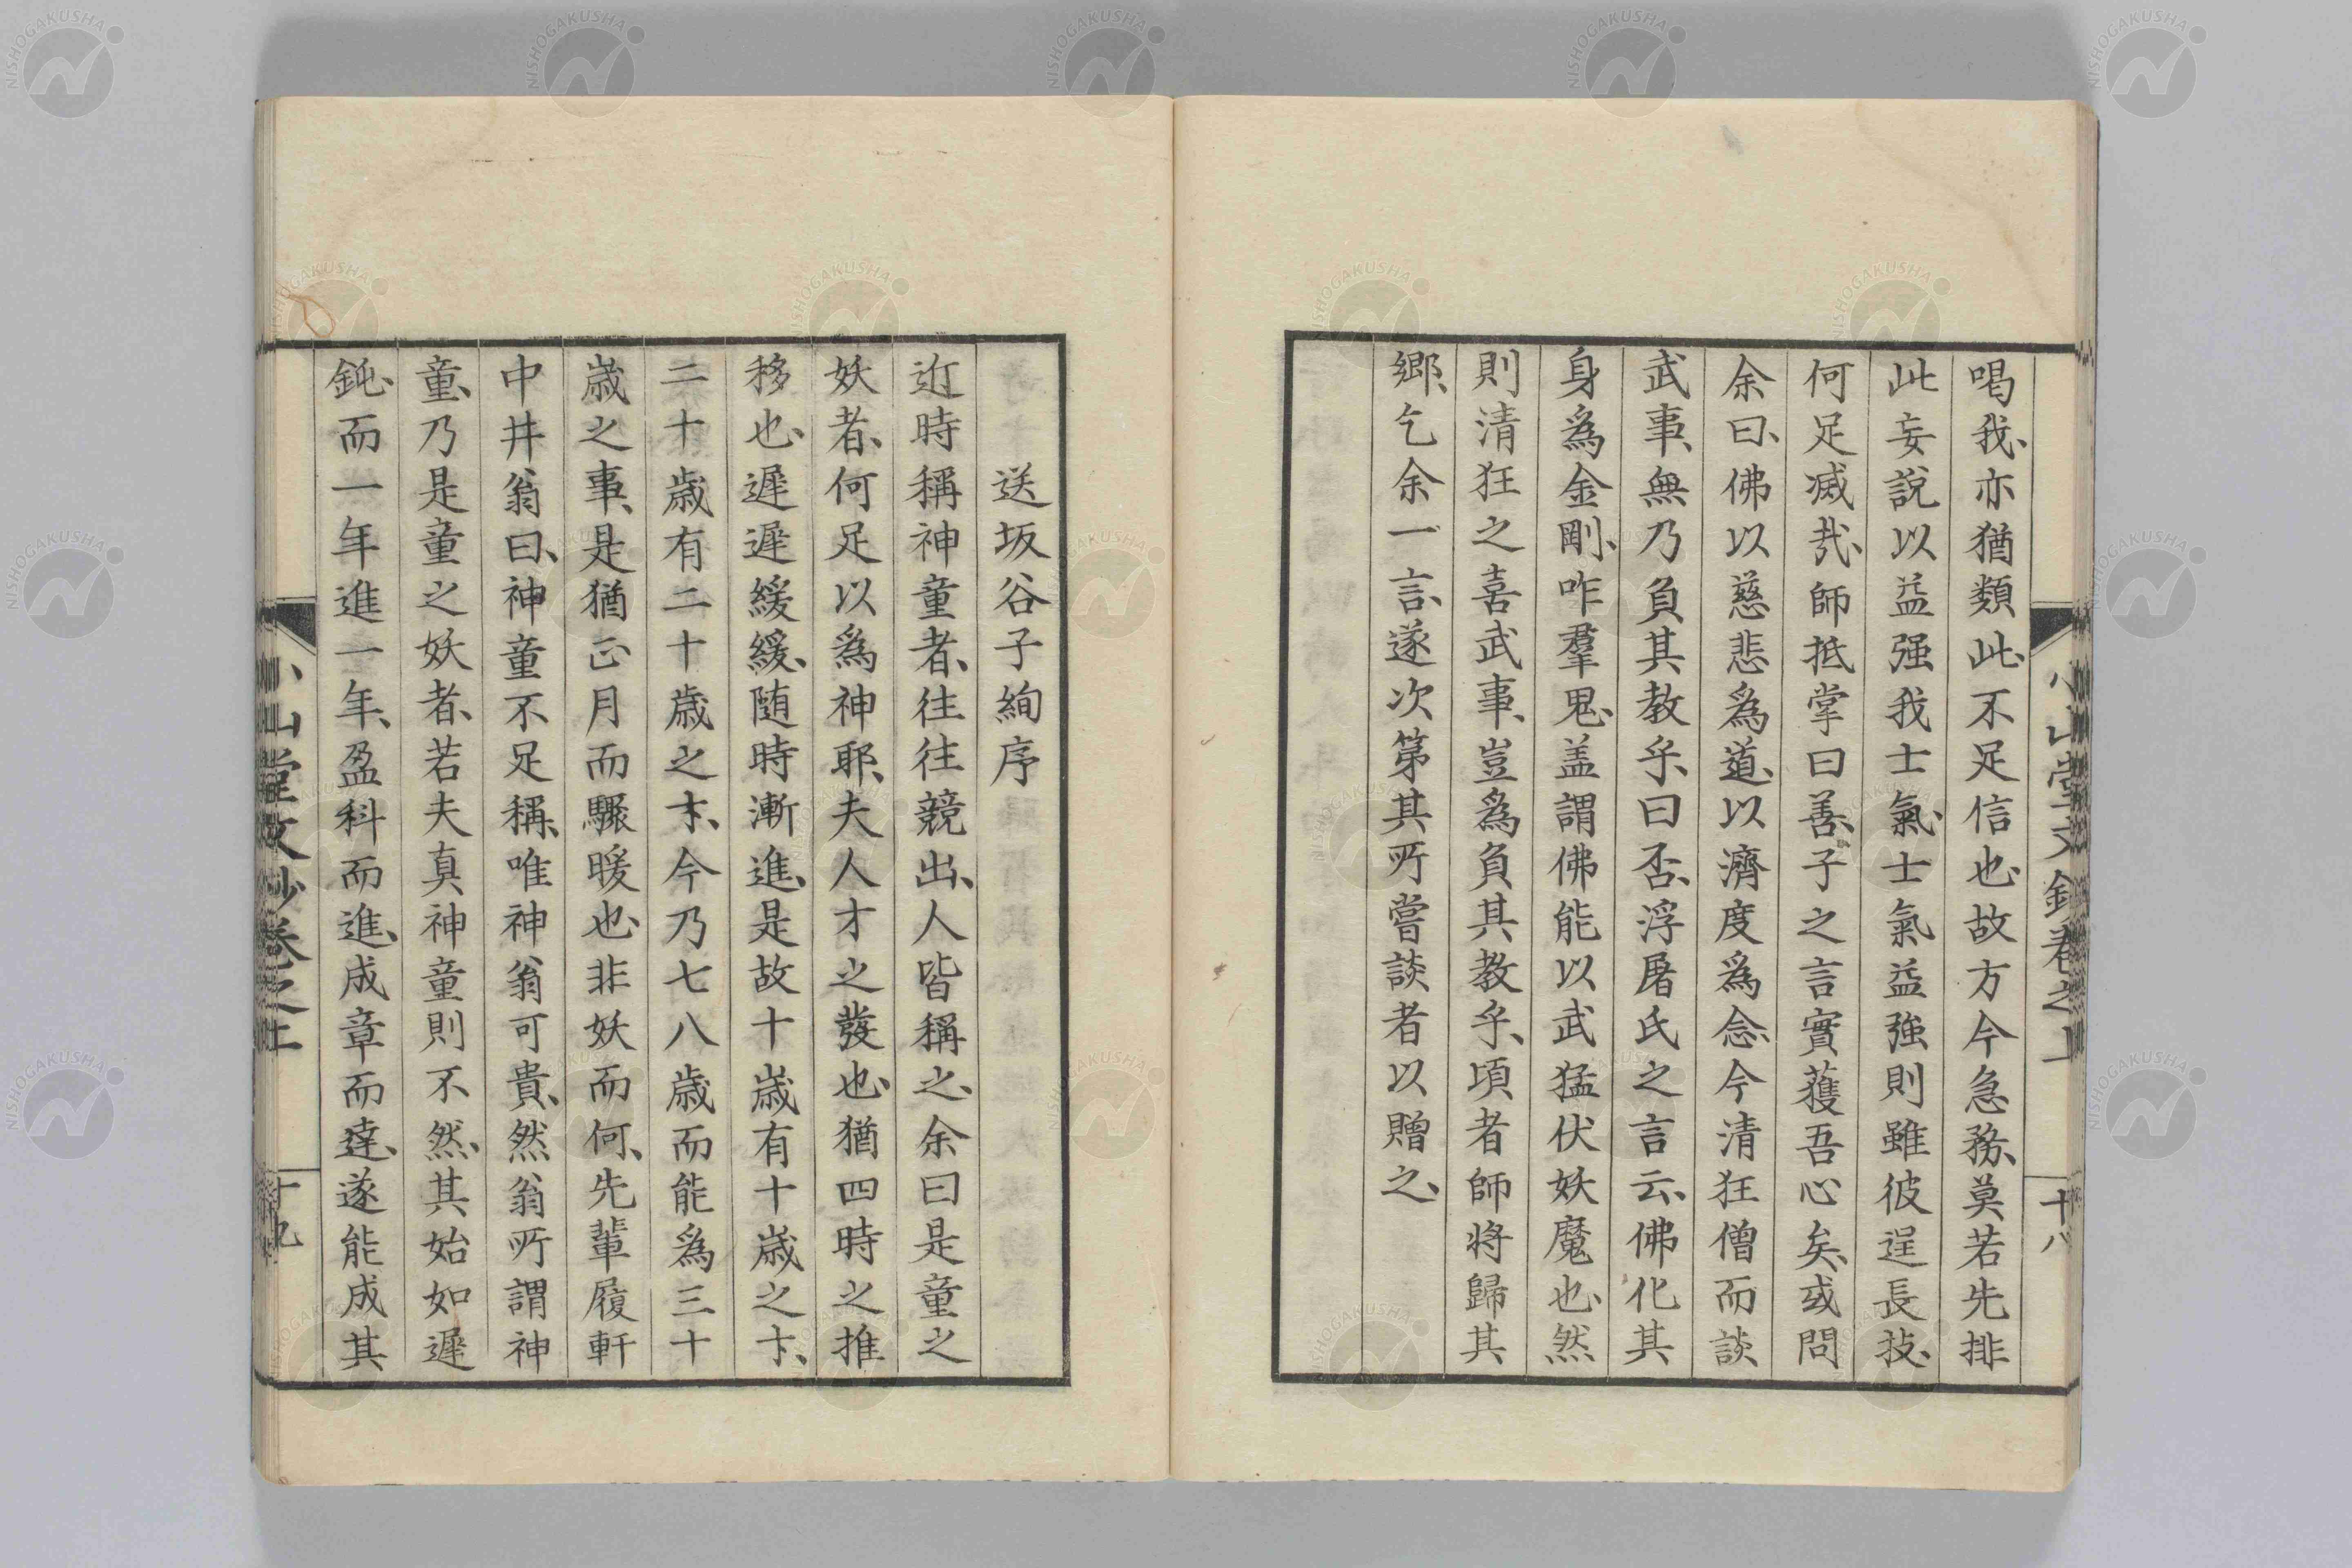 小山堂文鈔卷之上
十八
喝我、亦猶類此、不足信也、故方今急務、莫若先排
此妄說以益强我士氣、士氣益強則雖彼逞長技、
何足滅㢤、師抵掌曰善、子之言實獲吾心矣、或問
余曰、佛以慈悲爲道、以濟度爲念、今清狂僧而談
武事、無乃負其教乎、曰否、浮屠氏之言云、佛化其
身爲金剛、咋羣鬼、盖謂佛能以武猛伏妖魔也、然
則清狂之喜武事、豈爲負其教乎、頃者師将歸其
鄉、乞余一言、遂次第其所嘗談者以贈之、
送坂谷子絢序
近時稱神童者、往往競出、人皆稱之、余曰是童之
妖者、何足以爲神耶、夫人才之發也、猶四時之推
移也、遲遲緩緩、随時漸進、是故十歳有十歳之才、
二十歳有二十歳之才、今乃七八歳而能爲三十
歳之事、是猶正月而驟暖也、非妖而何、先輩履軒
中井翁曰、神童不足稱、唯神翁可貴、然翁所謂神
童、乃是童之妖者、若夫真神童則不然、其始如遲
鈍、而一年進一年、盈科而進、成章而達、遂能成其
小山堂文鈔卷之上
十九
NISHOGAKUSHA